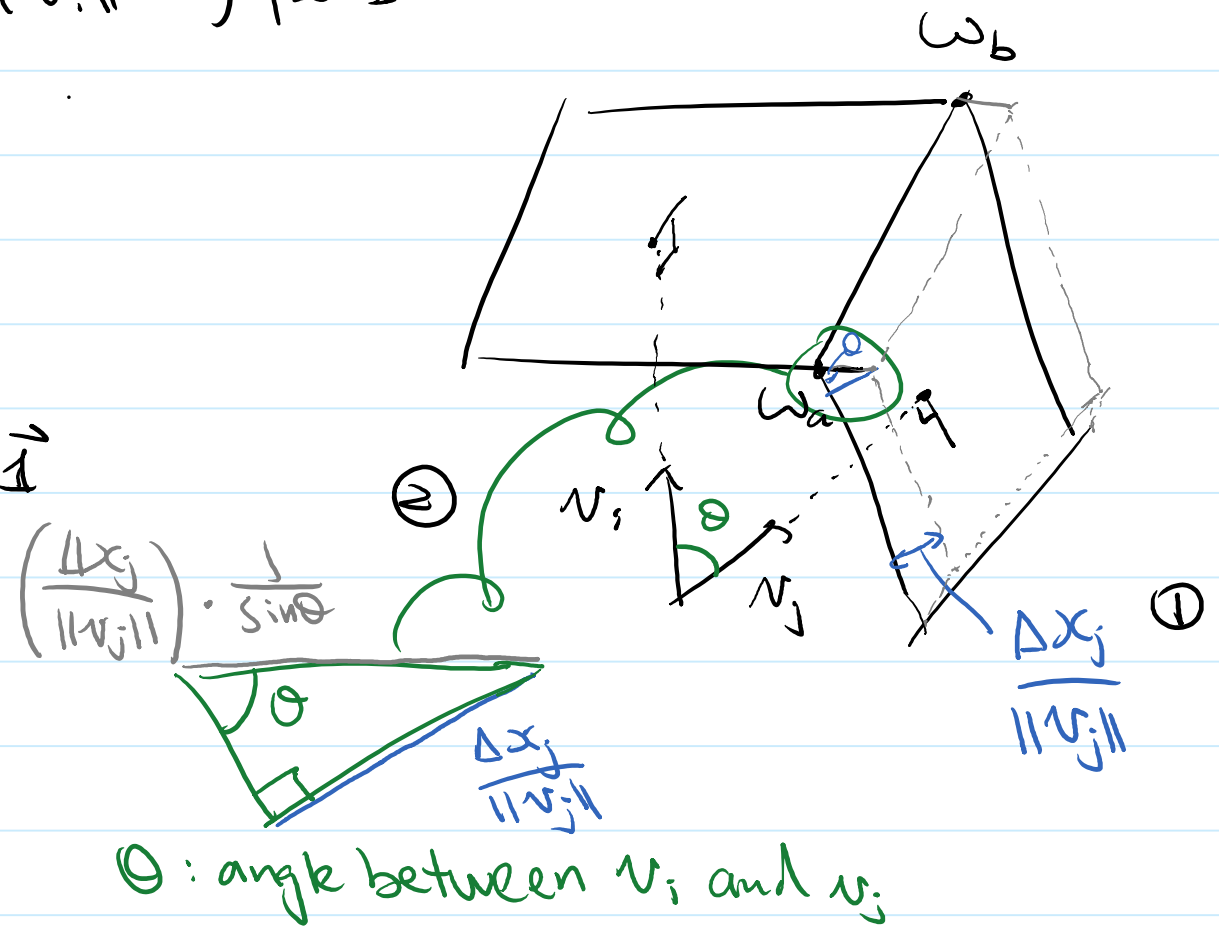 ω_b
ω_a
v_i
θ
v_j
θ
①
②
Δx_j / ||v_j||
1⃗
(Δx_j / ||v_j||) · 1/sinθ
θ
Δx_j / ||v_j||
θ : angle between v_i and v_j